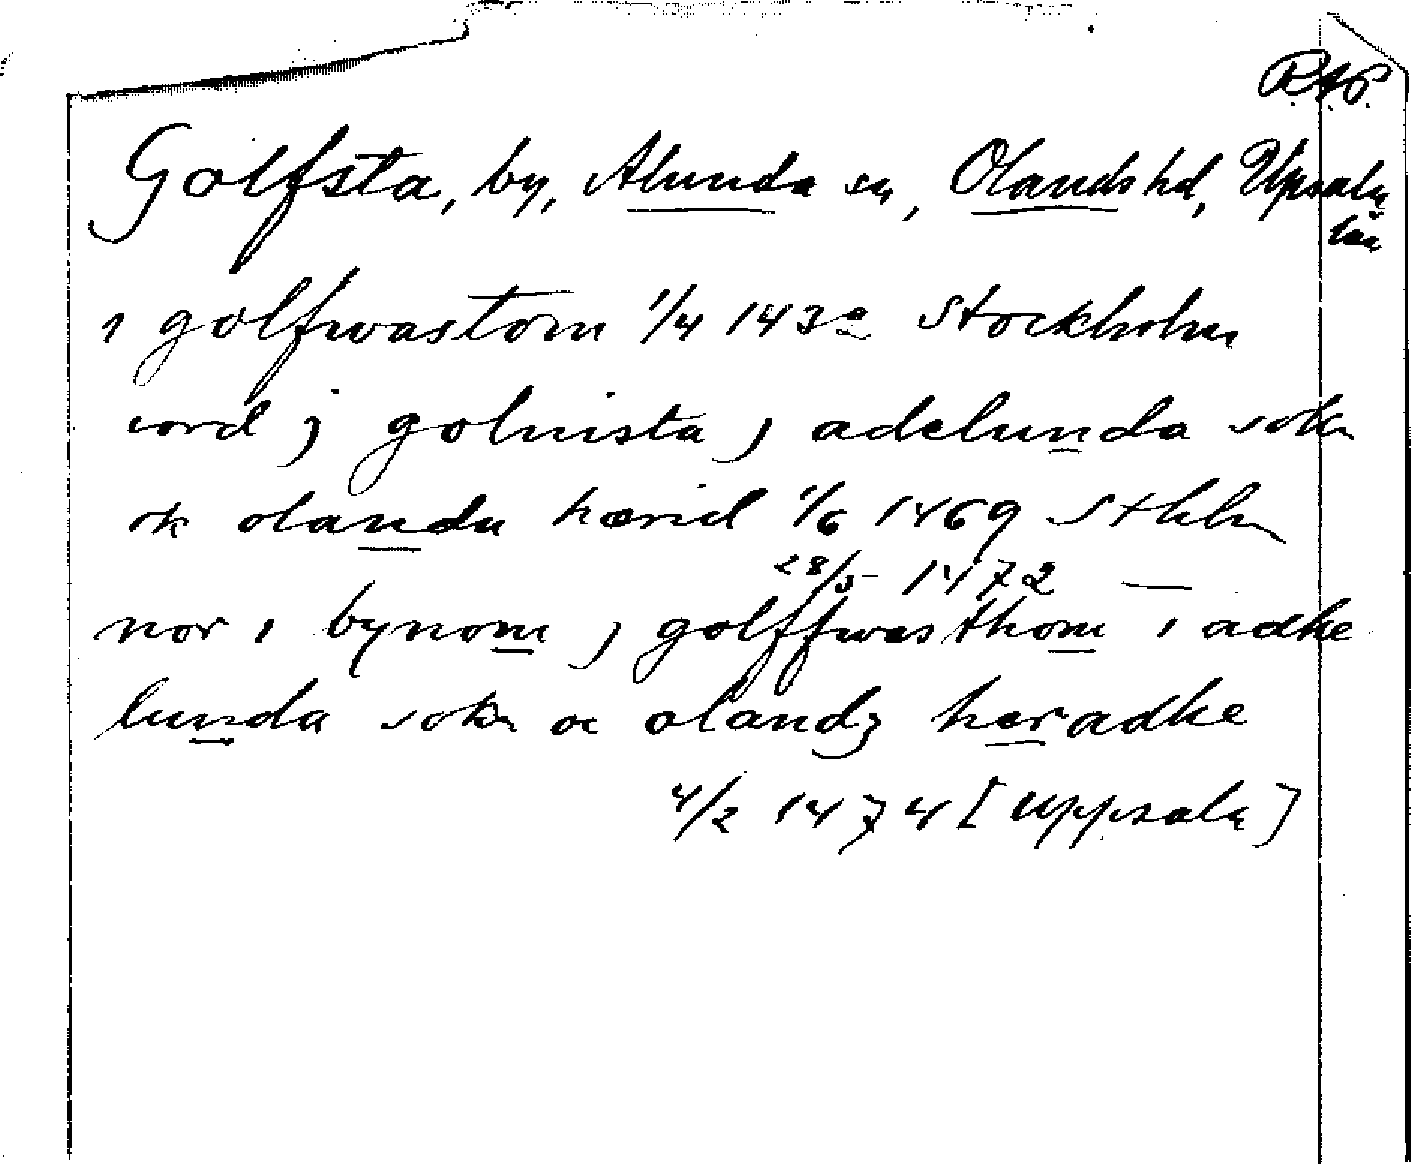 R.A.P.
Golfsta, by, Alunda sn, Olands hd, Upsala
län
i golfwastom 1/4 1430 Stockholm
iord j goluista j adelunda sokn
ok olanda hærid 1/6 1469 Sthlm
28/5 1472 —
nor i bynom j golffwasthom i adhe
lunda sokn oc olandz heradhe
4/2 1474 [Uppsala]